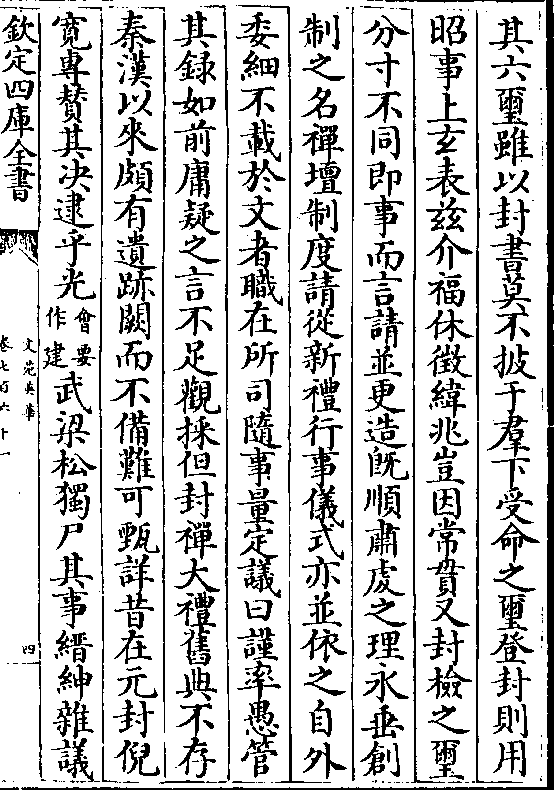 其六璽雖以封書莫不披于羣下受命之璽登封則用
昭事上玄表兹介福休徴緯兆豈因常貫又封檢之璽
分寸不同即事而言請並更造旣順肅䖍之理永垂創
制之名禪壇制度請從新禮行事儀式亦並依之自外
委細不載於文者職在所司隨事量定議曰謹率愚管
其録如前庸疑之言不足觀採但封禪大禮舊典不存
秦漢以來頗有遺跡闕而不備難可甄詳昔在元封倪
寛專賛其決逮乎光㑹要作建武梁松獨尸其事縉紳雜議
欽定四庫全書
文苑英華
卷七百六十一
四